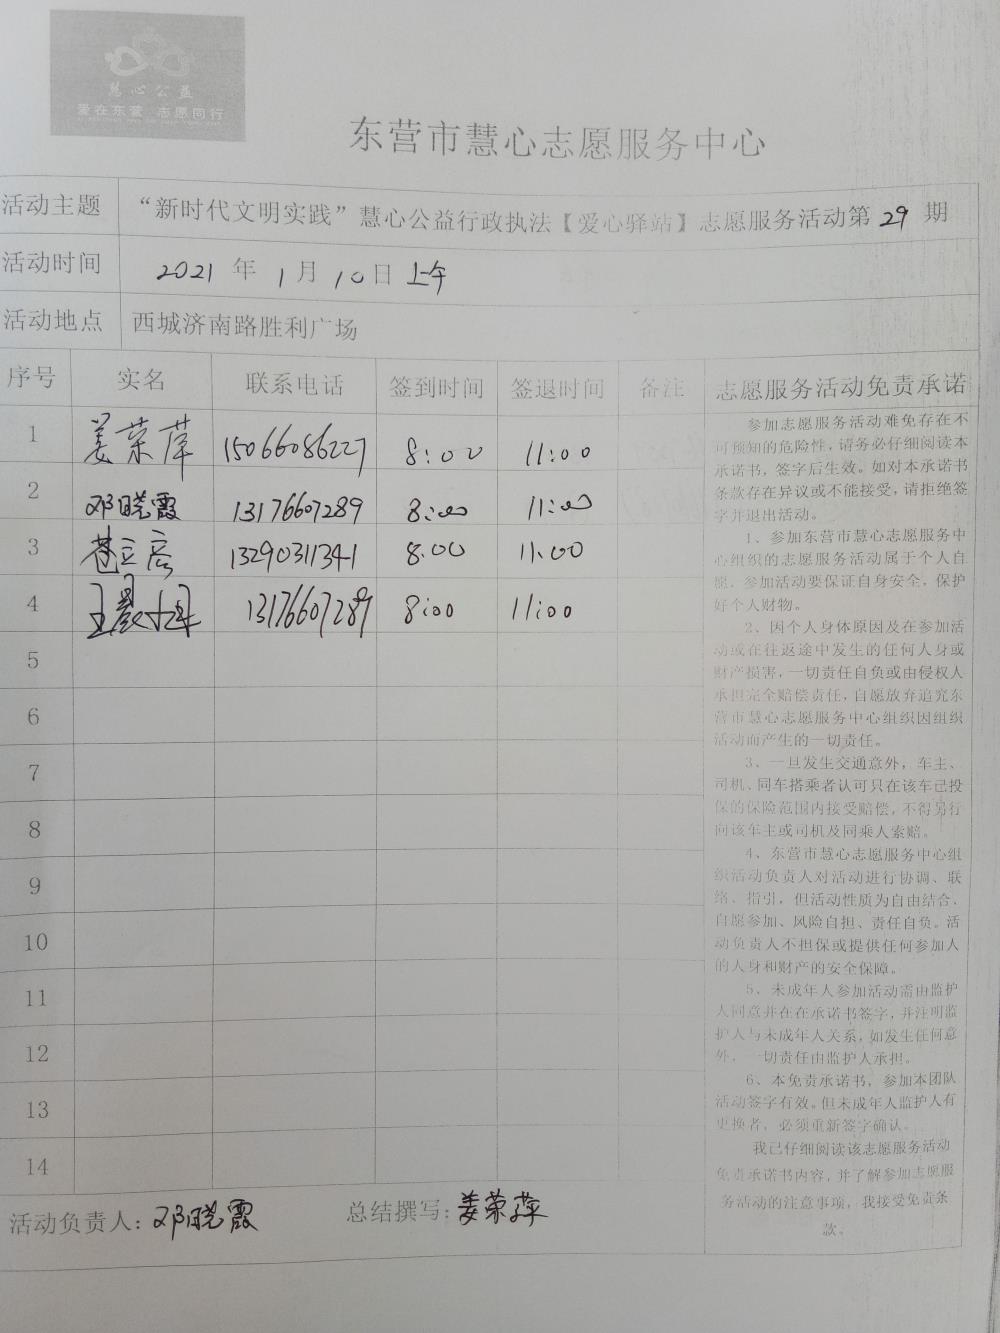 慧心公益
爱在东营 志愿同行
东营市慧心志愿服务中心
活动主题 “新时代文明实践”慧心公益行政执法【爱心驿站】志愿服务活动第29期
活动时间 2021年1月10日上午
活动地点 西城济南路胜利广场
序号 实名 联系电话 签到时间 签退时间 备注 志愿服务活动免责承诺
1 姜荣萍 15066086227 8:00 11:00
2 邓晓霞 13176607289 8:00 11:00
3 13290311341 8:00 11:00
4 王晨 13176607289 8:00 11:00
5
6
7
8
9
10
11
12
13
14
参加志愿服务活动难免存在不
可预知的危险性,请务必仔细阅读本
承诺书,签字后生效。如对本承诺书
条款存在异议或不能接受,请拒绝签
字并退出活动。
1、参加东营市慧心志愿服务中
心组织的志愿服务活动属于个人自
愿,参加活动要保证自身安全,保护
好个人财物。
2、因个人身体原因及在参加活
动或在往返途中发生的任何人身或
财产损害,一切责任自负或由侵权人
承担完全赔偿责任,自愿放弃追究东
营市慧心志愿服务中心组织因组织
活动而产生的一切责任。
3、一旦发生交通意外,车主、
司机、同车搭乘者认可只在该车已投
保的保险范围内接受赔偿,不得另行
向该车主或司机及同乘人索赔。
4、东营市慧心志愿服务中心组
织活动负责人对活动进行协调、联
络、指引,但活动性质为自由结合、
自愿参加、风险自担、责任自负。活
动负责人不担保或提供任何参加人
的人身和财产的安全保障。
5、未成年人参加活动需由监护
人同意并在在承诺书签字,并注明监
护人与未成年人关系,如发生任何意
外,一切责任由监护人承担。
6、本免责承诺书,参加本团队
活动签字有效。但未成年人监护人有
更换者,必须重新签字确认。
我已仔细阅读该志愿服务活动
免责承诺书内容,并了解参加志愿服
务活动的注意事项,我接受免责条
款。
活动负责人:邓晓霞 总结撰写:姜荣萍